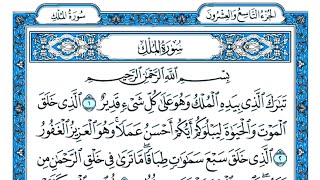 الجزء التاسع والعشرون
سورة الملك
سورة الملك
بسم الله الرحمن الرحيم
تَبَٰرَكَ الَّذِي بِيَدِهِ الْمُلْكُ وَهُوَ عَلَىٰ كُلِّ شَيْءٍ قَدِيرٌ ١ الَّذِي خَلَقَ
الْمَوْتَ وَالْحَيَوٰةَ لِيَبْلُوَكُمْ أَيُّكُمْ أَحْسَنُ عَمَلًا وَهُوَ الْعَزِيزُ الْغَفُورُ
٢ الَّذِي خَلَقَ سَبْعَ سَمَٰوَٰتٍ طِبَاقًا مَّا تَرَىٰ فِي خَلْقِ الرَّحْمَٰنِ مِن